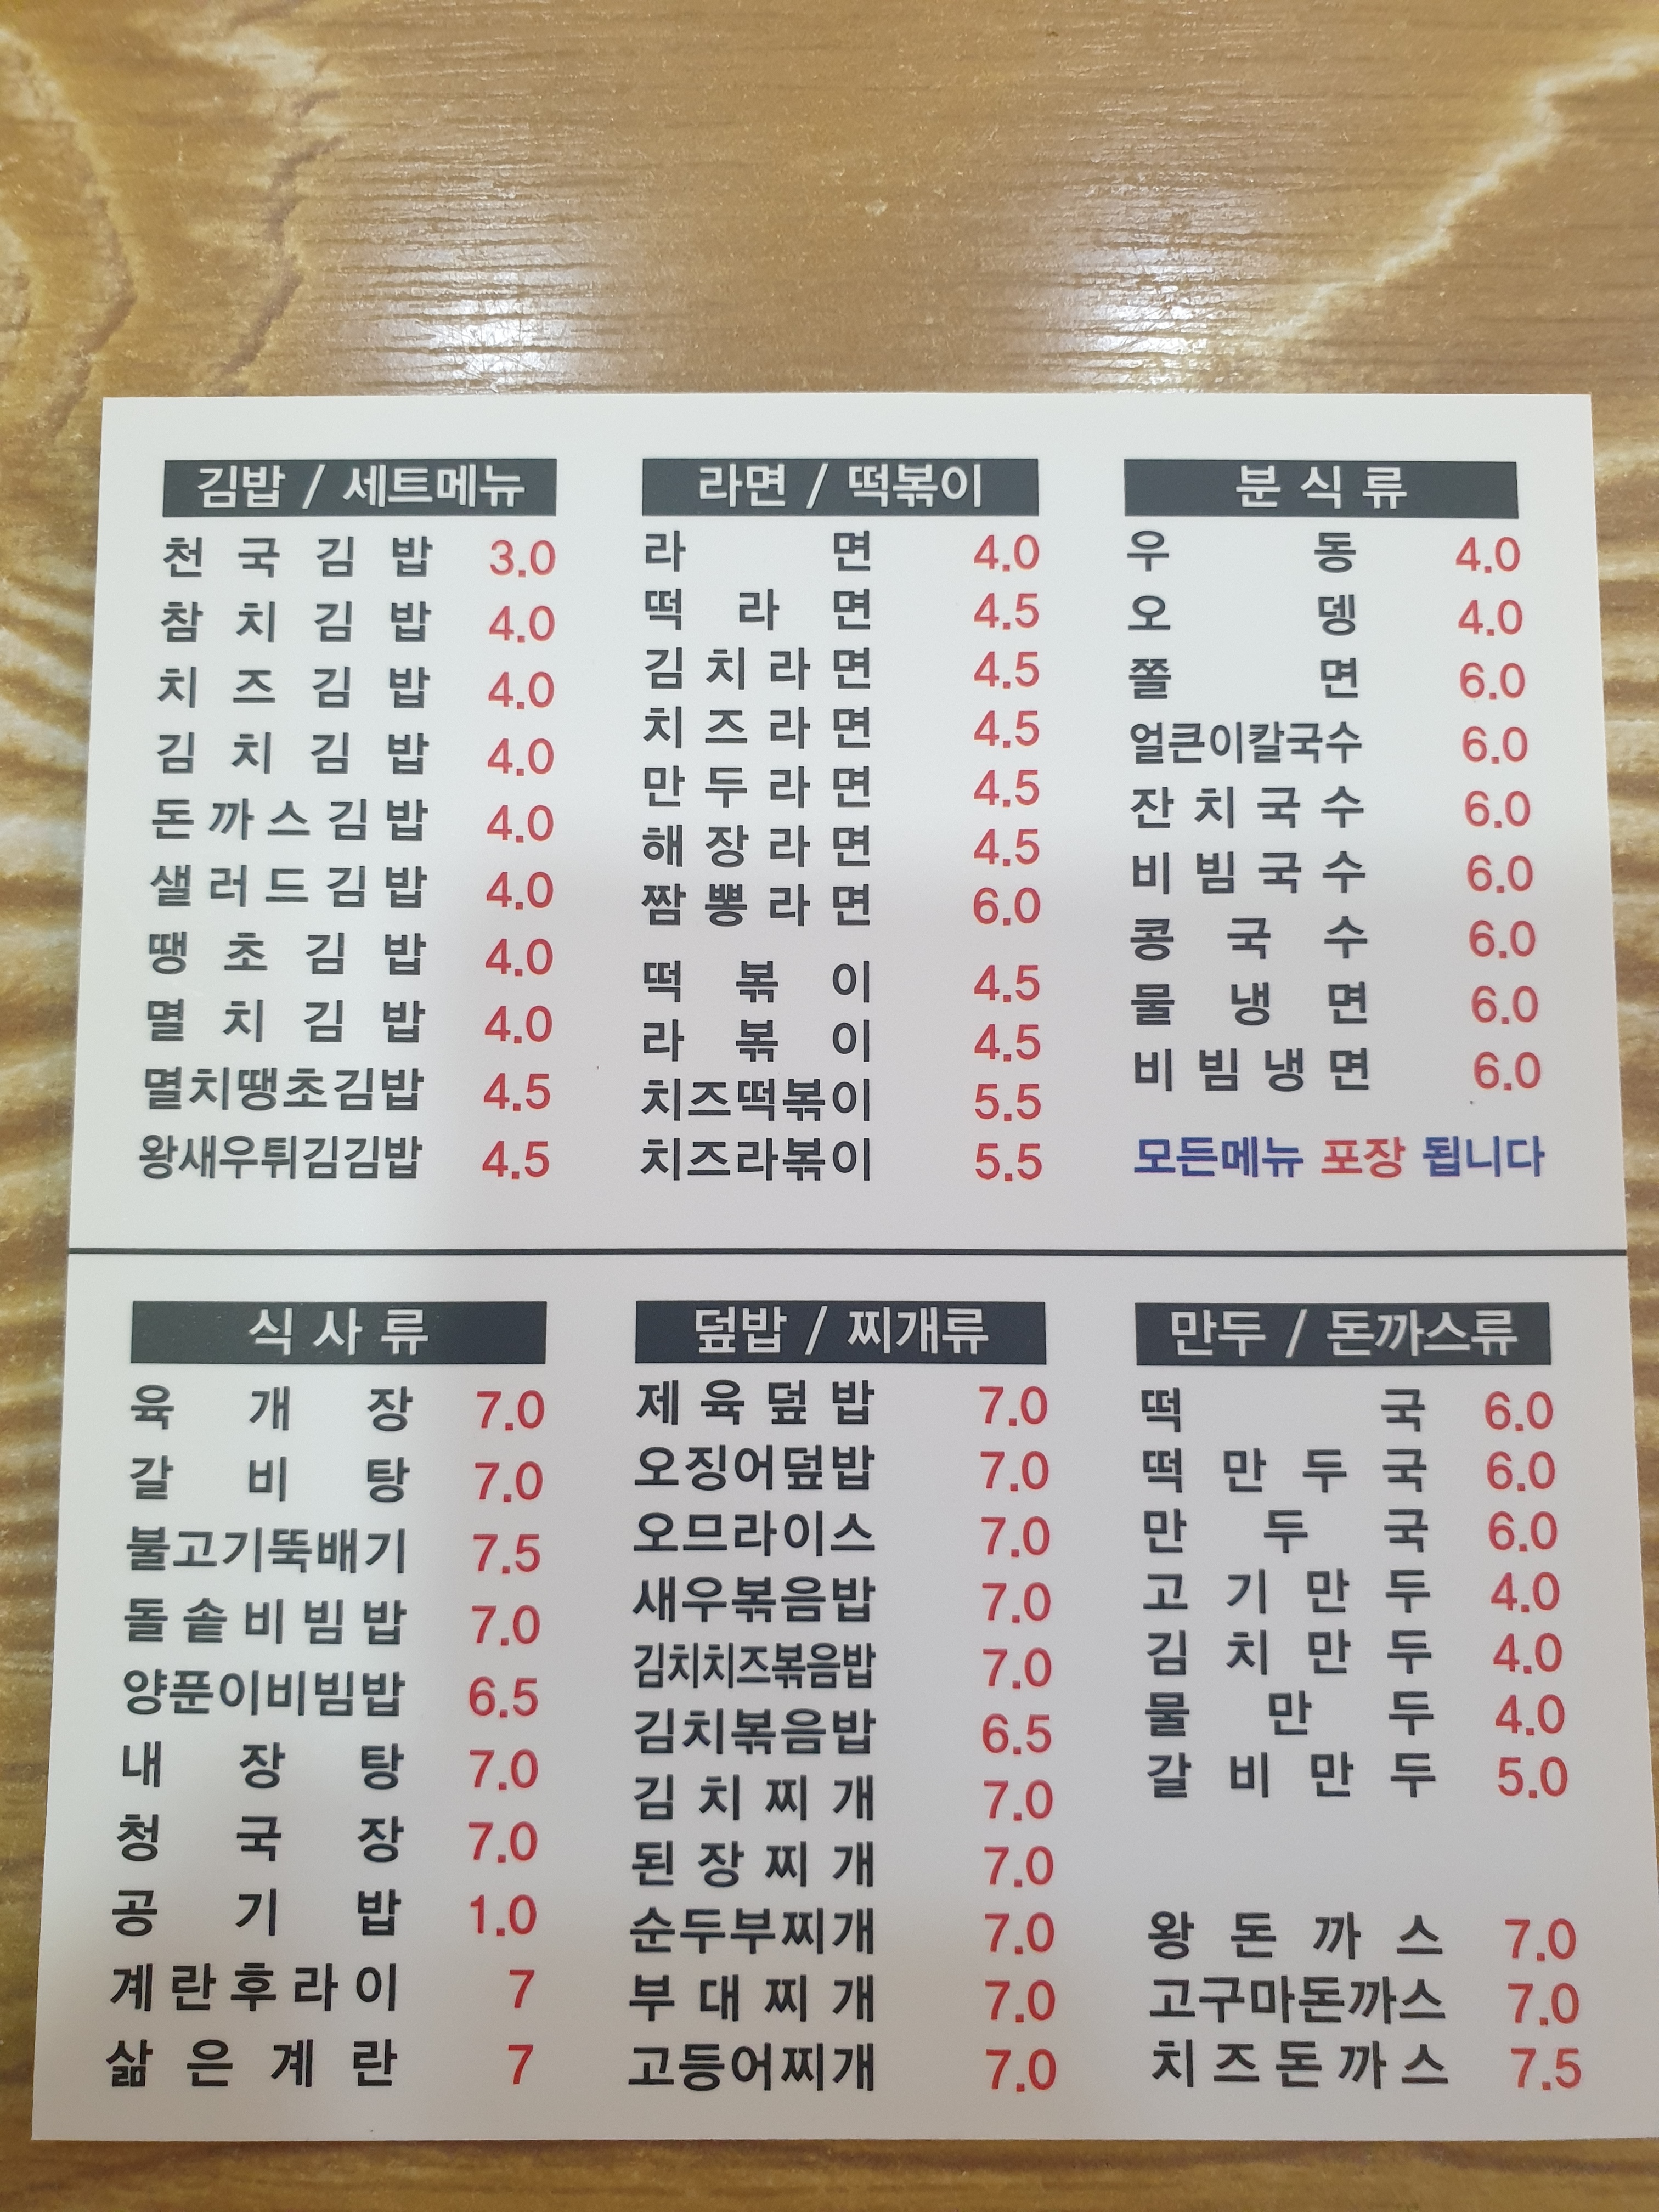 김밥 / 세트메뉴
천국김밥 3.0
참치김밥 4.0
치즈김밥 4.0
김치김밥 4.0
돈까스김밥 4.0
샐러드김밥 4.0
땡초김밥 4.0
멸치김밥 4.0
멸치땡초김밥 4.5
왕새우튀김김밥 4.5
라면 / 떡볶이
라면 4.0
떡라면 4.5
김치라면 4.5
치즈라면 4.5
만두라면 4.5
해장라면 4.5
짬뽕라면 6.0
떡볶이 4.5
라볶이 4.5
치즈떡볶이 5.5
치즈라볶이 5.5
분식류
우동 4.0
오뎅 4.0
쫄면 6.0
얼큰이칼국수 6.0
잔치국수 6.0
비빔국수 6.0
콩국수 6.0
물냉면 6.0
비빔냉면 6.0
모든메뉴 포장 됩니다
식사류
육개장 7.0
갈비탕 7.0
불고기뚝배기 7.5
돌솥비빔밥 7.0
양푼이비빔밥 6.5
내장탕 7.0
청국장 7.0
공기밥 1.0
계란후라이 7
삶은계란 7
덮밥 / 찌개류
제육덮밥 7.0
오징어덮밥 7.0
오므라이스 7.0
새우볶음밥 7.0
김치치즈볶음밥 7.0
김치볶음밥 6.5
김치찌개 7.0
된장찌개 7.0
순두부찌개 7.0
부대찌개 7.0
고등어찌개 7.0
만두 / 돈까스류
떡국 6.0
떡만두국 6.0
만두국 6.0
고기만두 4.0
김치만두 4.0
물만두 4.0
갈비만두 5.0
왕돈까스 7.0
고구마돈까스 7.0
치즈돈까스 7.5